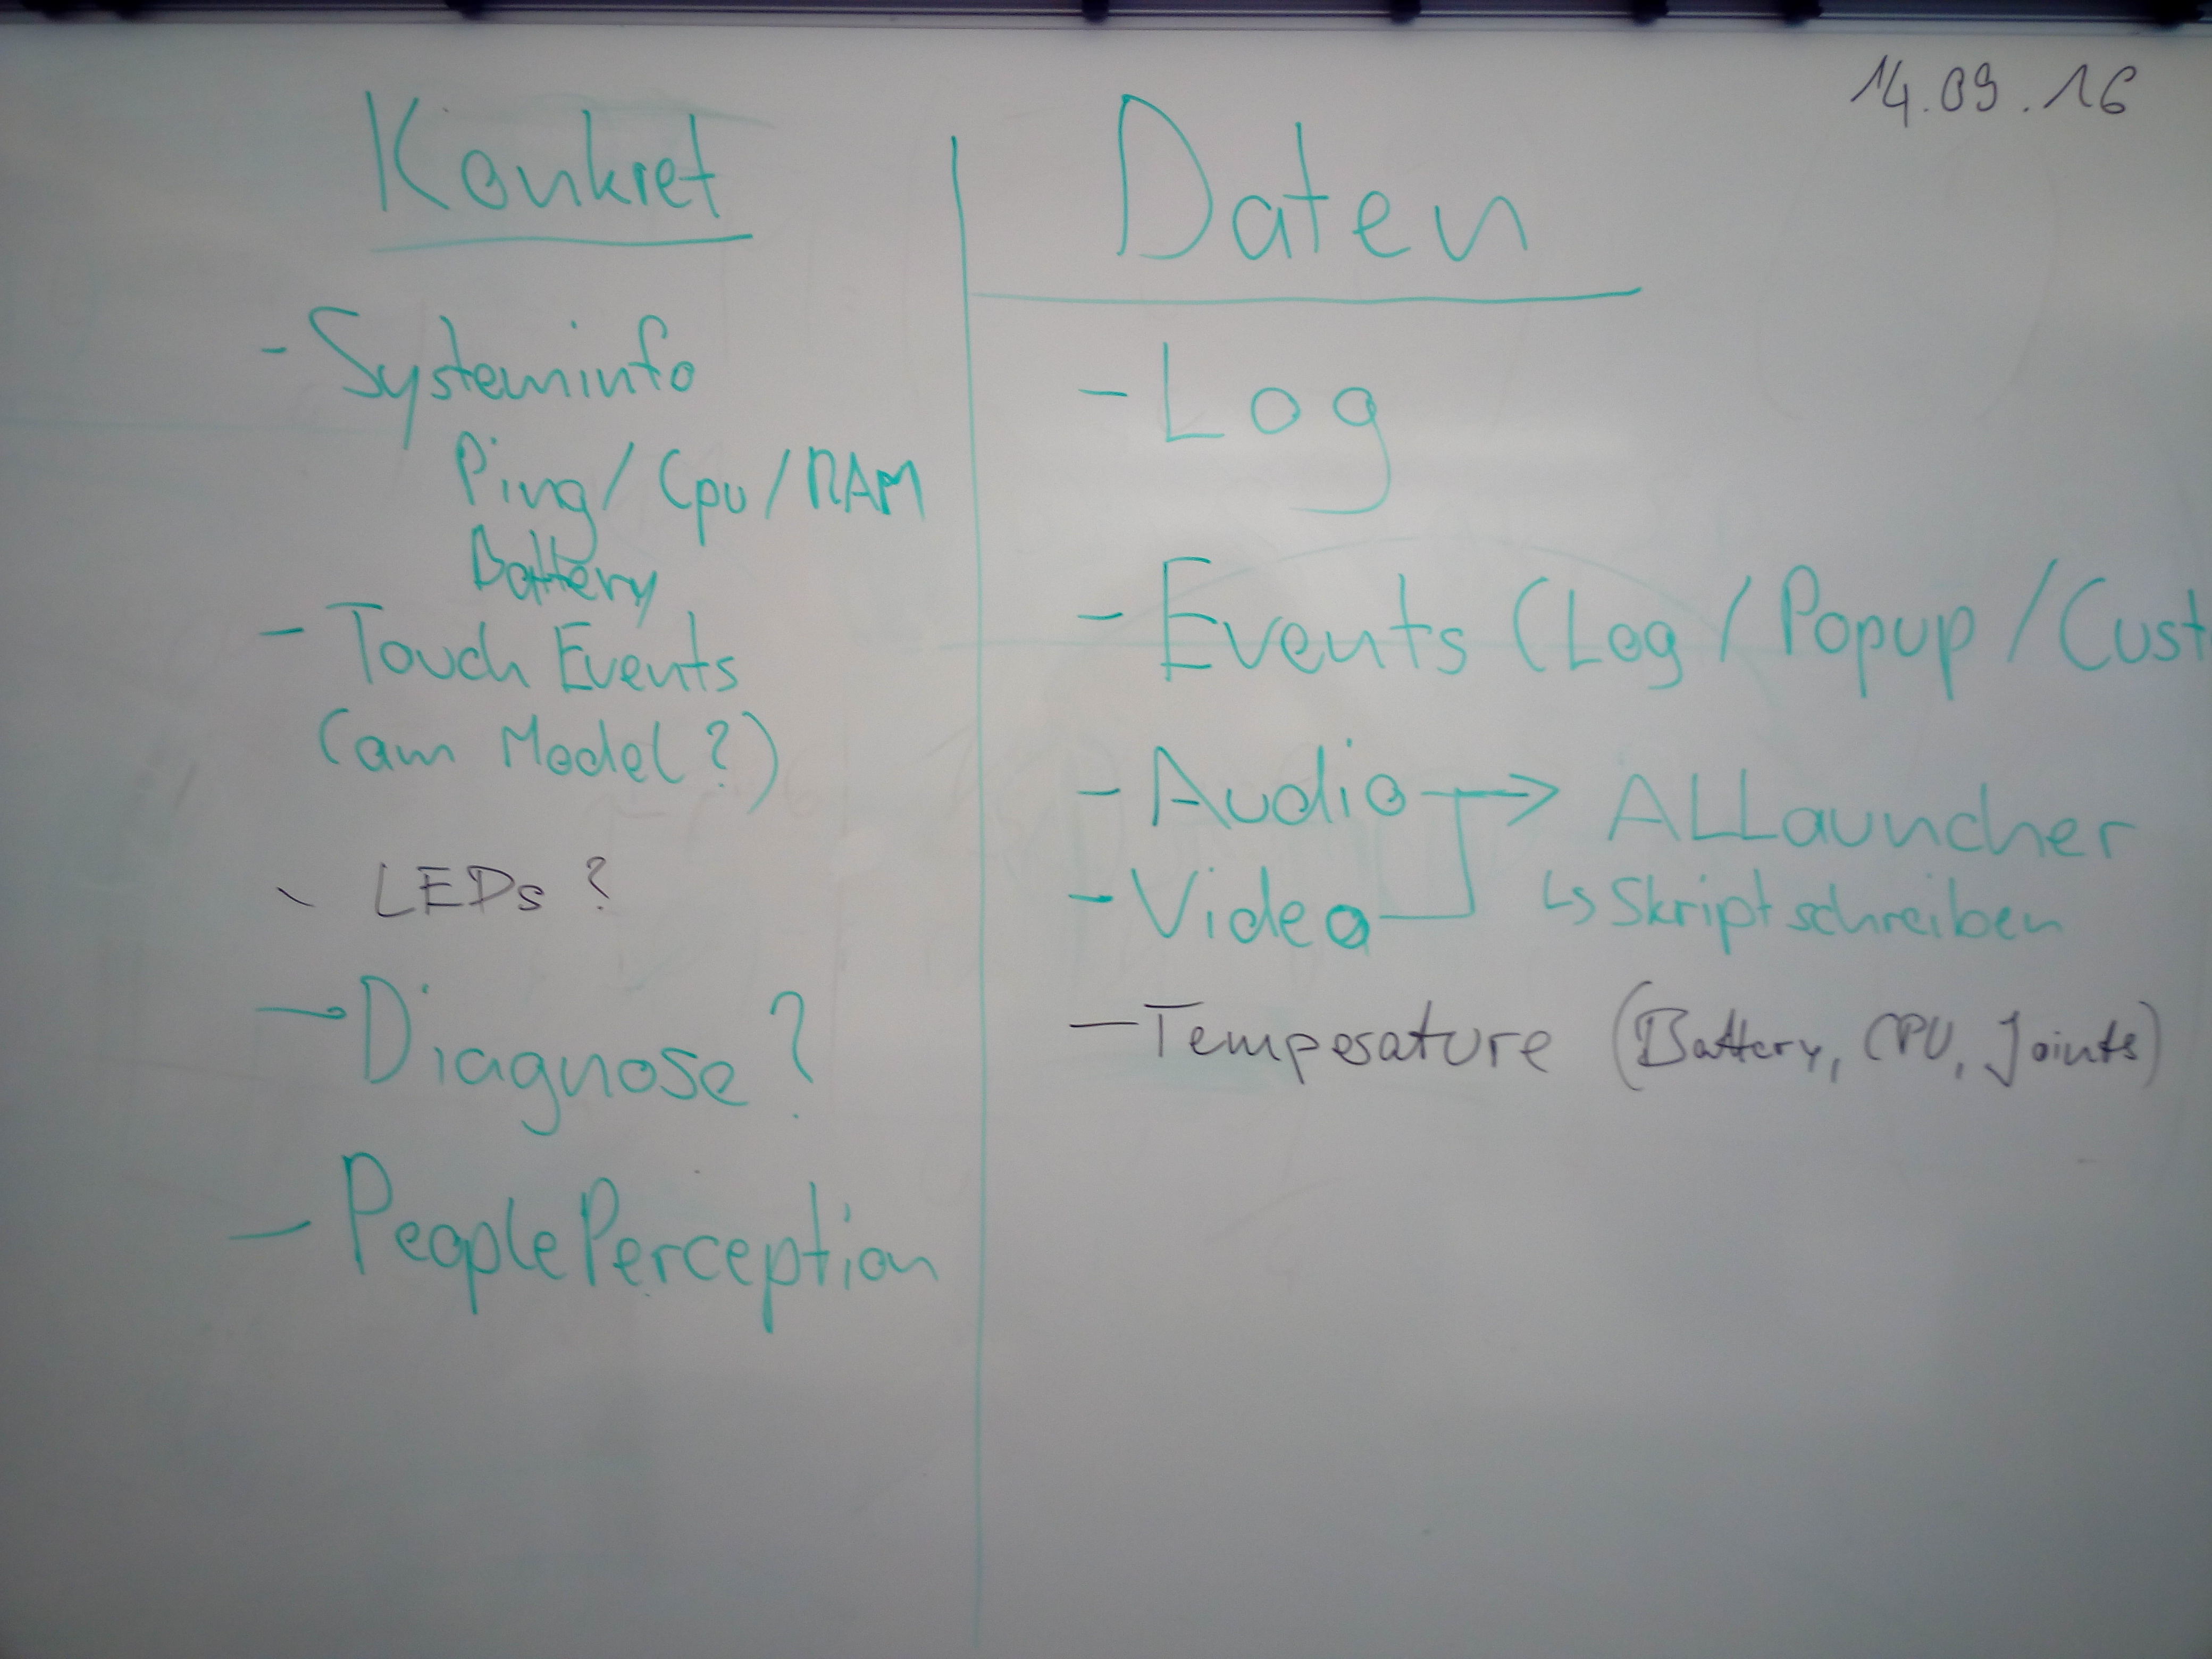 14.09.16
Konkret
- Systeminfo
Ping / Cpu / RAM
Battery
- Touch Events
(am Model?)
- LEDs ?
- Diagnose ?
- PeoplePerception
Daten
- Log
- Events (Log / Popup / Cust
- Audio → ALLauncher
- Video ↳ Skript schreiben
- Temperature (Battery, CPU, Joints)